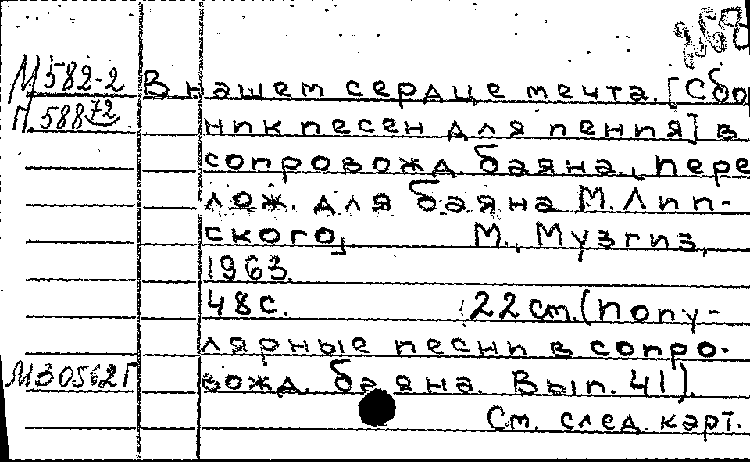 М582-2 В нашем сердце мечта. [Сбор
П.588 72 ник песен для пения] в
сопровожд. баяна, [пере
лож. для баяна М. Лип-
ского] М., Музгиз,
1963.
48 с. 22 см. (Попу-
лярные песни в сопро-
М30562Г вожд. баяна. Вып. 41).
См. след. карт.